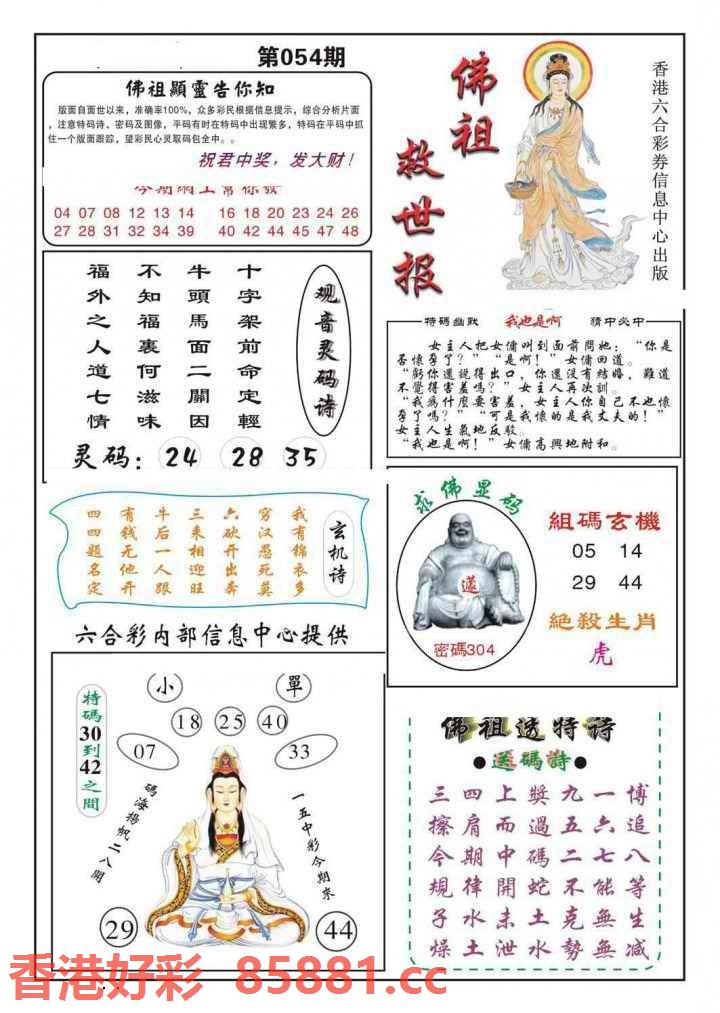 第054期
佛祖顯靈告你知
版面自面世以来，准确率100%，众多彩民根据信息提示，综合分析片面
，注意特码诗、密码及图像，平码有时在特码中出现繁多，特码在平码中抓
住一个版面跟踪，望彩民心灵取码包全中。。
祝君中奖，发大财！
04 07 08 12 13 14 16 18 20 23 24 26
27 28 31 32 34 39 40 42 44 45 47 48
佛祖
救世报
香港六合彩券信息中心出版
观音灵码诗
十字架前命定輕
牛頭馬面二關因
不知福裏何滋味
福外之人道七情
灵码： 24 28 35
特碼幽默 我也是啊 猜中必中
女主人把女傭叫到面前問她：“你是
否懷孕了？”“是啊！”女傭回道。
“虧你還說得出口，你還没有結婚，難道
不覺得害羞嗎？”女主人再次訓。
“我爲什麼要害羞，女主人你自己不也懷
孕了嗎？”“可是我懷的是我丈夫的！”
女主人生氣地反駁。
“我也是啊！”女傭高興地附和。
玄机诗
我有錦衣多
穷汉愚死莫
六砍开出奔
三来相迎旺
牛后一人跟
有钱无他开
四四题名定
求佛显码
遂
密碼304
組碼玄機
05 14
29 44
絶殺生肖
虎
六合彩内部信息中心提供
小 單
特碼30到42之間
18 25 40
07 33
碼海揚帆二八開
一五中彩今期來
29 44
佛祖透特诗
●送碼詩●
博追八等生減
一六七能無無
九五二不克勢
獎過碼蛇土水
上而中開未泄
四肩期律水土
三擦今規子燥
香港好彩 85881.cc